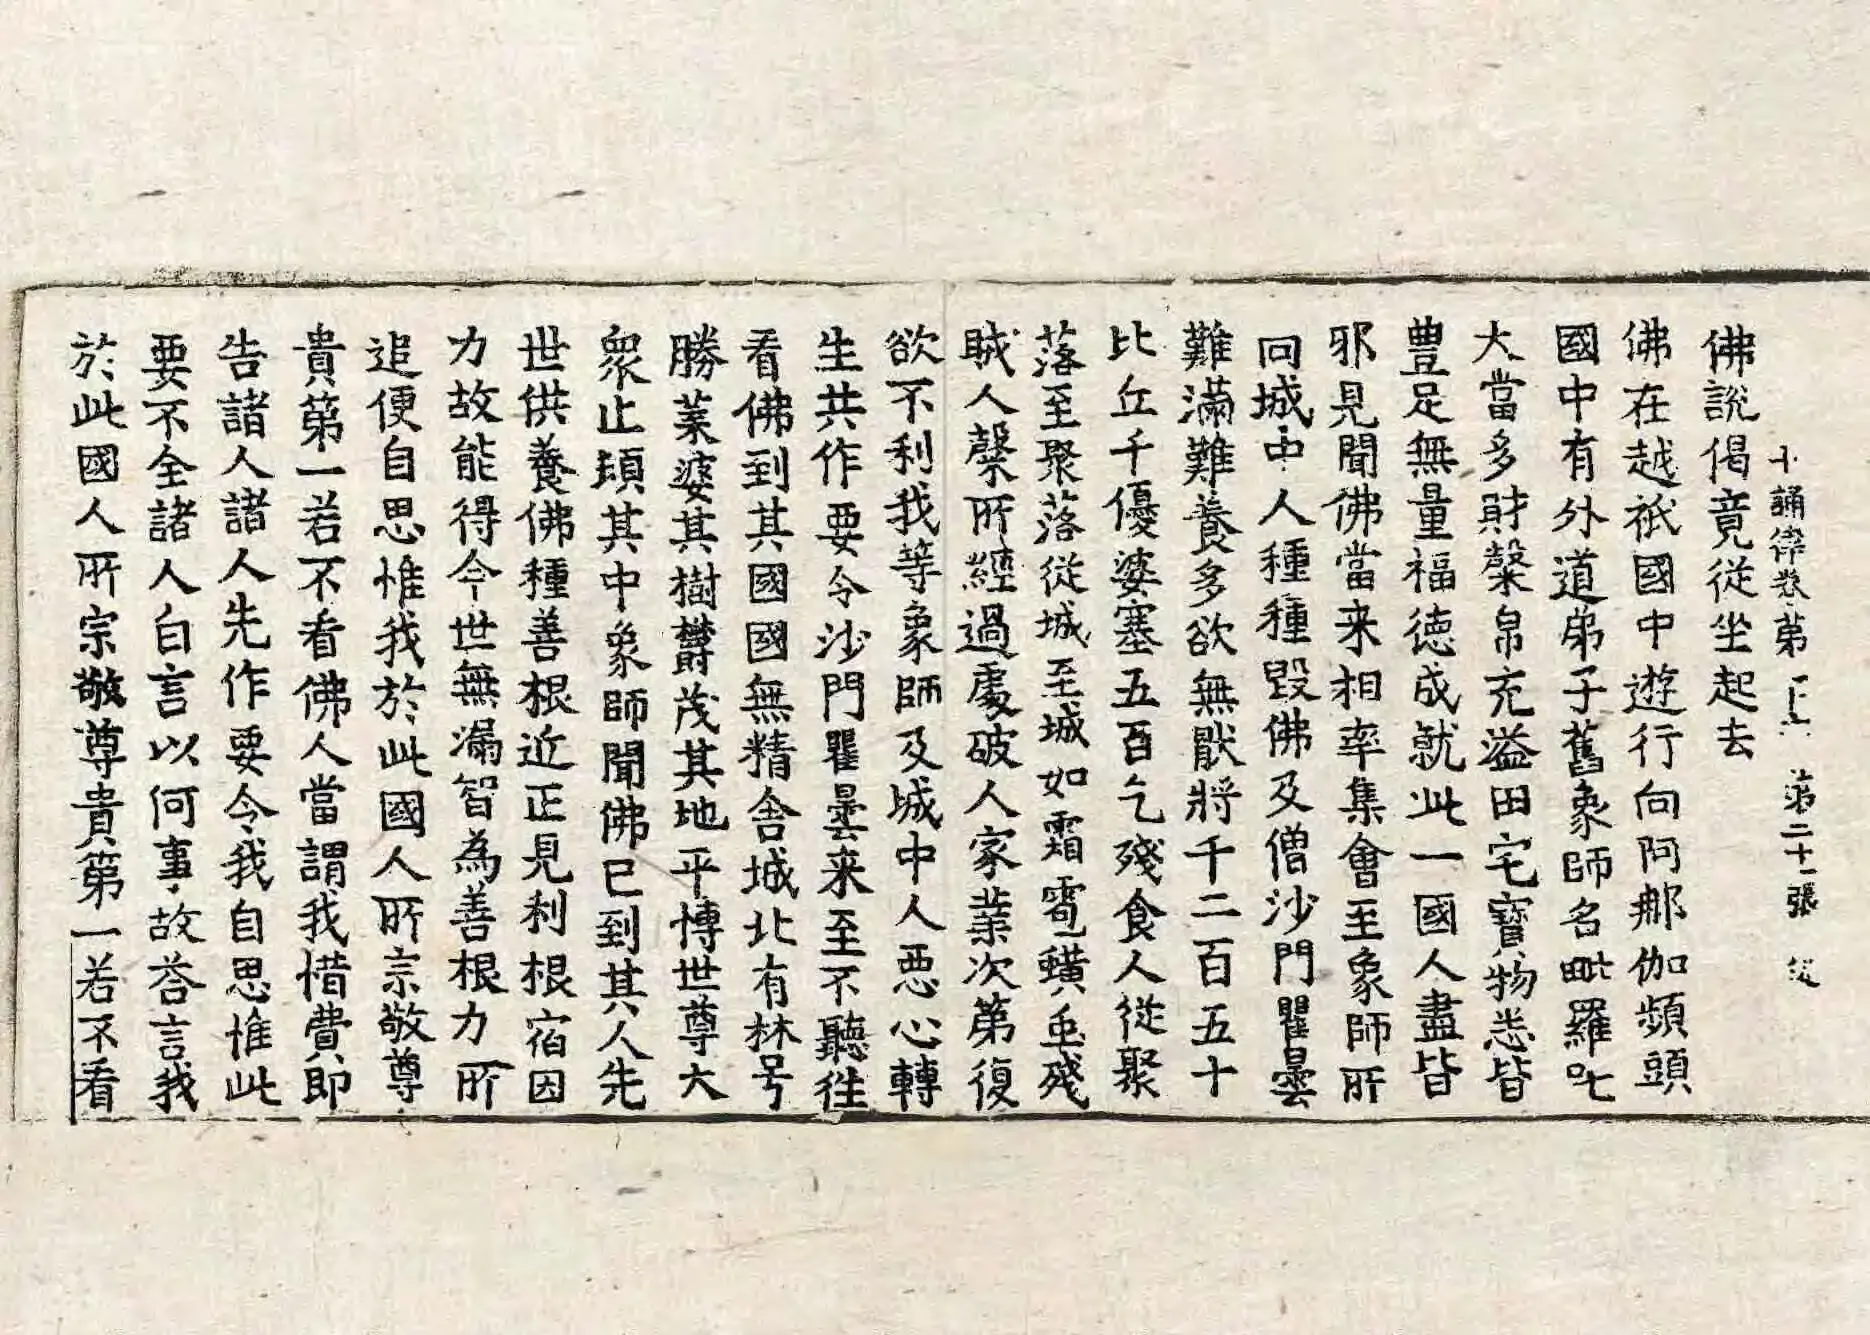 十誦律卷第 第二十一張
佛說偈竟從坐起去
佛在越祇國中遊行向阿那伽頻頭
國中有外道弟子舊象師名毗羅吒
大富多財槃帛充溢田宅寶物悉皆
豐足無量福德成就此一國人盡皆
邪見聞佛當来相率集會至象師所
同城中人種種毀佛及僧沙門瞿曇
難滿難養多欲無猒將千二百五十
比丘千優婆塞五百乞殘食人從聚
落至聚落從城至城如霜雹蝗虫殘
賊人槃所經過處破人家業次第復
欲不利我等象師及城中人惡心轉
生共作要令沙門瞿曇来至不聽徃
看佛到其國國無精舍城北有林号
勝葉婆其樹欝茂其地平博世尊大
衆止頓其中象師聞佛已到其人先
世供養佛種善根近正見利根宿因
力故能得今世無漏智為善根力所
追便自思惟我於此國人所宗敬尊
貴第一若不看佛人當謂我惜費即
告諸人諸人先作要令我自思惟此
要不全諸人白言以何事故荅言我
於此國人所宗敬尊貴第一若不看